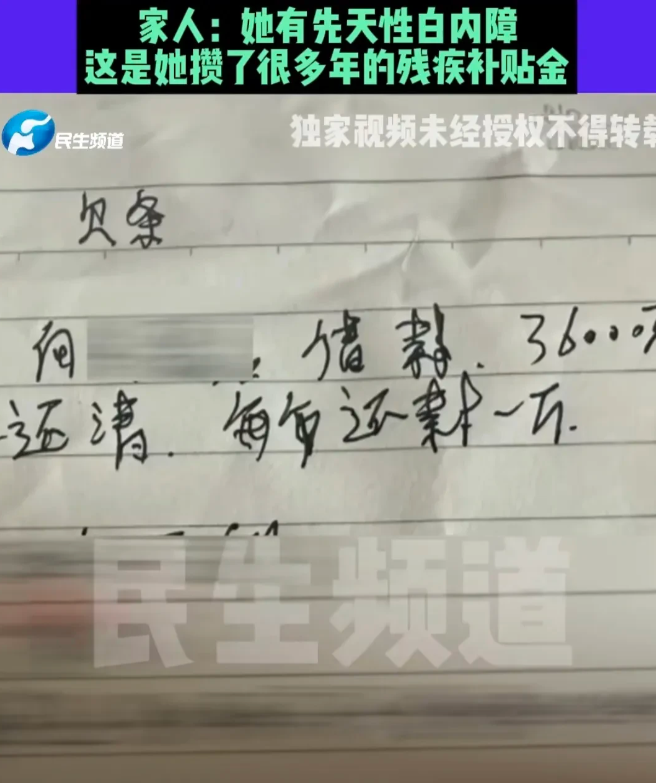 家人：她有先天性白内障
这是她攒了很多年的残疾补贴金
民生频道
独家视频未经授权不得转载
欠条
向 借款.36000
还清.每年还款一万.
民生频道